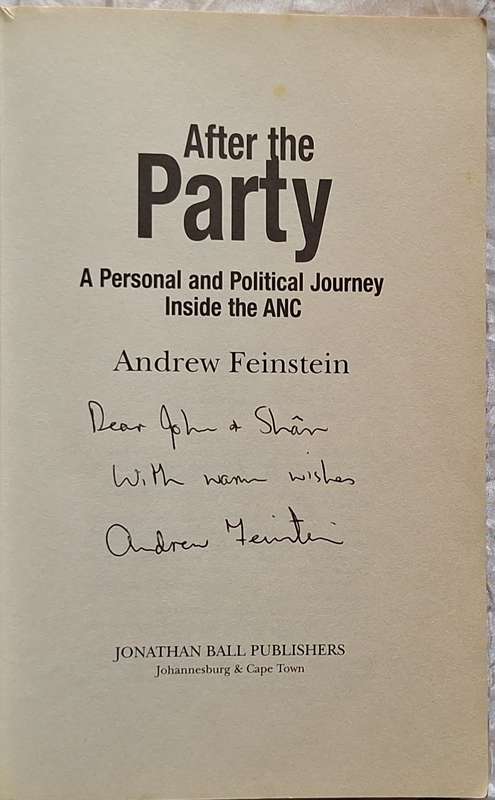 After the
Party
A Personal and Political Journey
Inside the ANC
Andrew Feinstein
Dear John & Shân
With warm wishes
Andrew Feinstein
JONATHAN BALL PUBLISHERS
Johannesburg & Cape Town